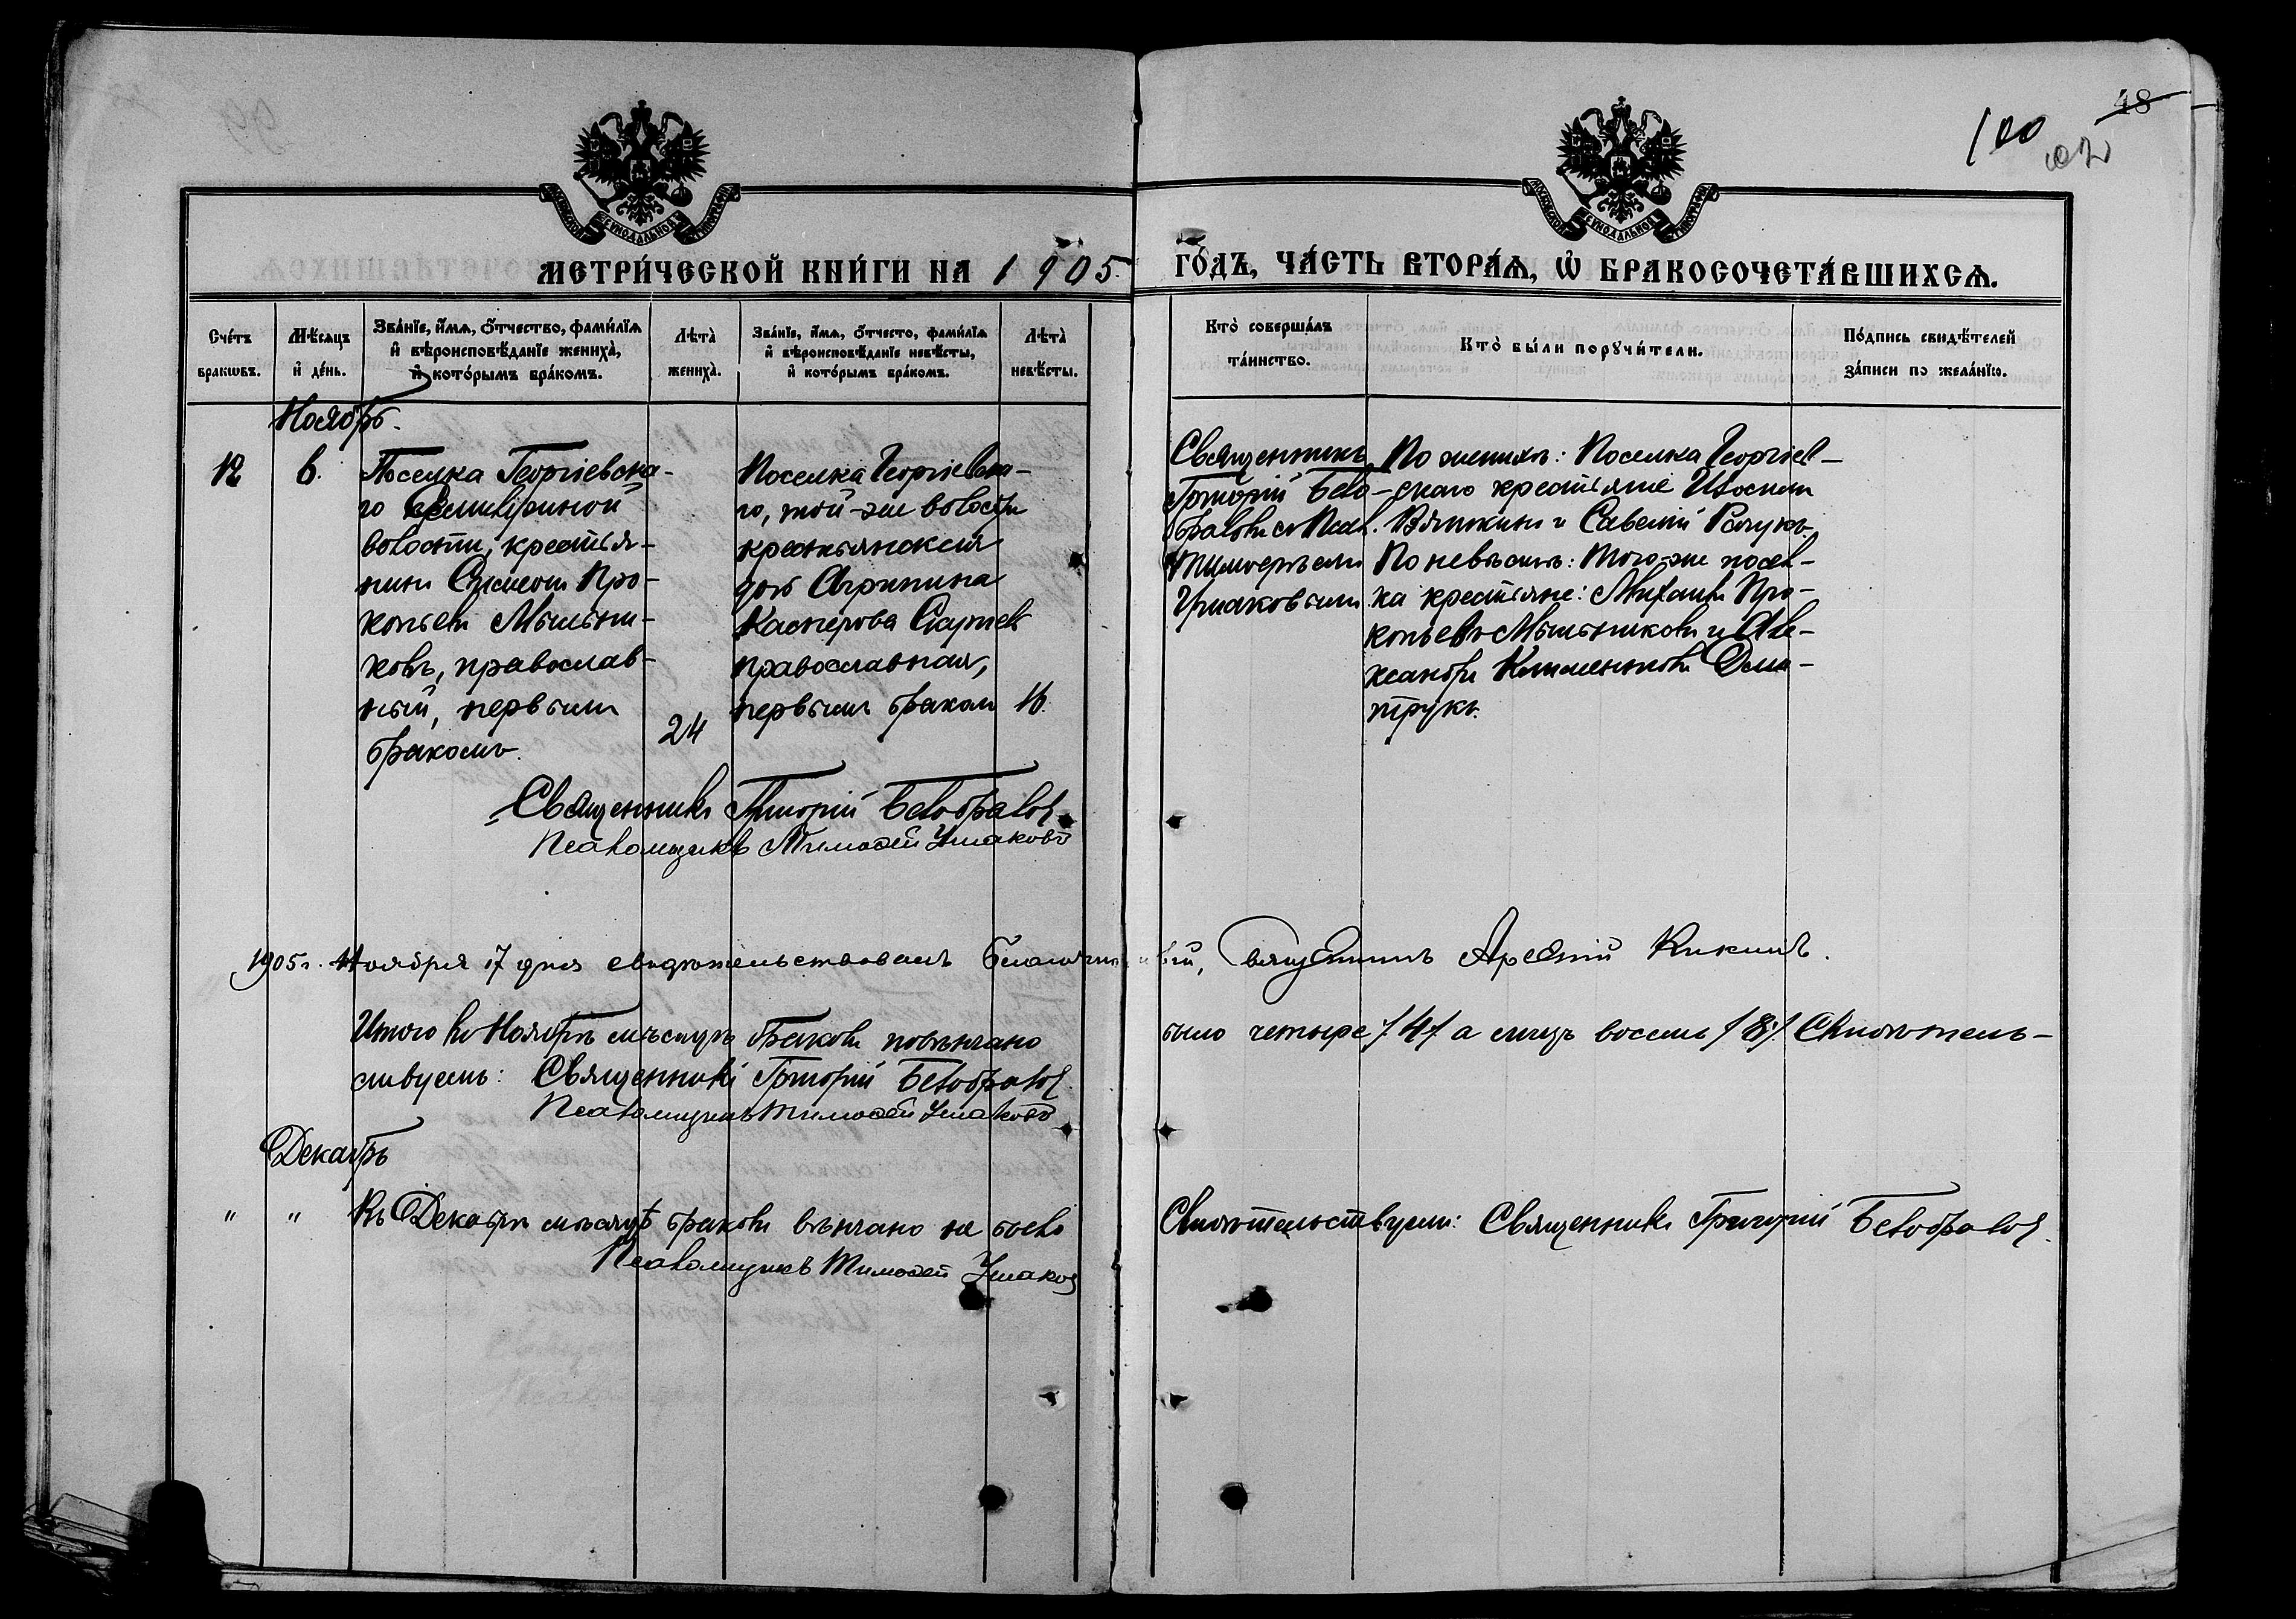 48
100
МЕТРИ́ЧЕСКОЙ КНИ́ГИ НА 1905
ГО́ДЪ, ЧА́СТЬ ВТОРА́Ѧ, Ѡ БРАКОСОЧЕТА́ВШИХСѦ.
Сче́тъ бракѡвъ.
Мѣ́сяцъ и́ де́нь.
Зва́нїе, и́мѧ, ѻ́тчество, фами́лїѧ и́ вѣроисповѣ́данїе жениха̀, и́ кото́рымъ бра́комъ.
Лѣта̀ жениха̀.
Зва́нїе, и́мѧ, ѻ́тчесто, фами́лїѧ и́ вѣроисповѣ́данїе невѣ́сты, и́ кото́рымъ бра́комъ.
Лѣта̀ невѣ́сты.
Кто̀ соверша́лъ та́инство.
Кто̀ бы́ли порꙋчи́тели.
По́дпись свидѣ́телей за́писи по жела́нїю.
Ноябрь.
12
6.
Поселка Георгіевска-
го
волости, крестья-
нинъ Симеонъ Про-
копьевъ Мыльни-
ковъ, православ-
ный, первымъ
бракомъ.
24
Поселка Георгіевска-
го, той-же волости
крестьянская
дочь Агрипина
Касперова
православная,
первымъ бракомъ
16.
Священникъ
Григорій Бѣло-
бравовъ съ Псал.
Тимоѳеемъ
Ушаковымъ.
По женихѣ: Поселка Георгіев-
скаго крестьяне
Вяткинъ и Савелій
По невѣстѣ: того-же посел-
ка крестьяне: Михаилъ Про-
копьевъ Мыльниковъ и Але-
ксандръ Климентовъ Дми-
трукъ.
Священникъ Григорій Бѣлобравов
Псаломщикъ Тимоѳей Ушаковъ
1905 г. Ноября 17 дня свидѣтельствовалъ Благочинный, Священникъ Арсеній Кикинъ.
Итого въ Ноябрѣ мѣсяцѣ браковъ повѣнчано было четыре /4/ а лицъ восемь /8/. Свидѣтель-
ствуемъ: Священникъ Григорій Бѣлобравов
Псаломщикъ Тимоѳей Ушаковъ
Декабрь
" " Въ Декабрѣ мѣсяцѣ браковъ вѣнчано не было Свидѣтельствуемъ: Священникъ Григорій Бѣлобравов.
Псаломщикъ Тимоѳей Ушаков